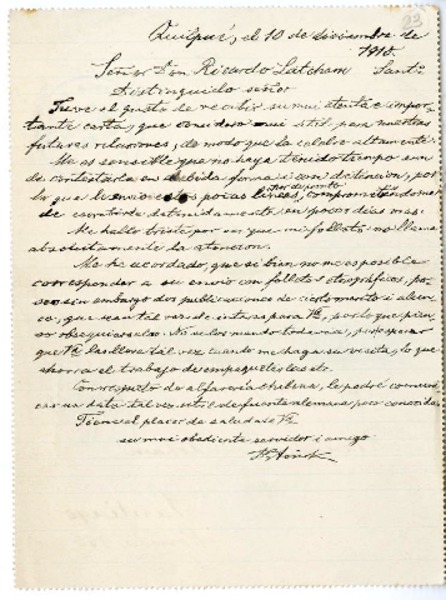 23
Quilpué, el 10 de diciembre de
1915.
Señor Don Ricardo Latcham Santo
Distinguido señor
Tuve el gusto de recibir su mui atenta e impor-
tante carta, que considero mui útil para nuestras
futuras relaciones, de modo que la celebro altamente.
Me es sensible que no haya tenido tiempo aun
de contestarla en debida forma i con detencion, por
lo que le envio estas pocas líneas, por de pronto, comprometiéndome
de escribirle detenidamente en pocos dias mas.
Me hallo triste por ver que mi folleto no llama
absolutamente la atencion.
Me he acordado, que si bien no me es posible
corresponder a su envio con folletos etnográficos, po-
seo sin embargo dos publicaciones de cierto mérito i alcan-
ce, que sean tal vez de interes para Vd, por lo que pien-
so obsequiárselos. No se los mando todavia, por esperar
que Vd las lleve tal vez cuando me haga su visita, lo que
ahorra el trabajo de empaquetarles etc.
Con respecto de alfarería chilena, le podré comuni-
car un dato tal vez útil de fuente alemana poco conocida.
Tiene el placer de saludar a Vd
su mui obediente servidor i amigo